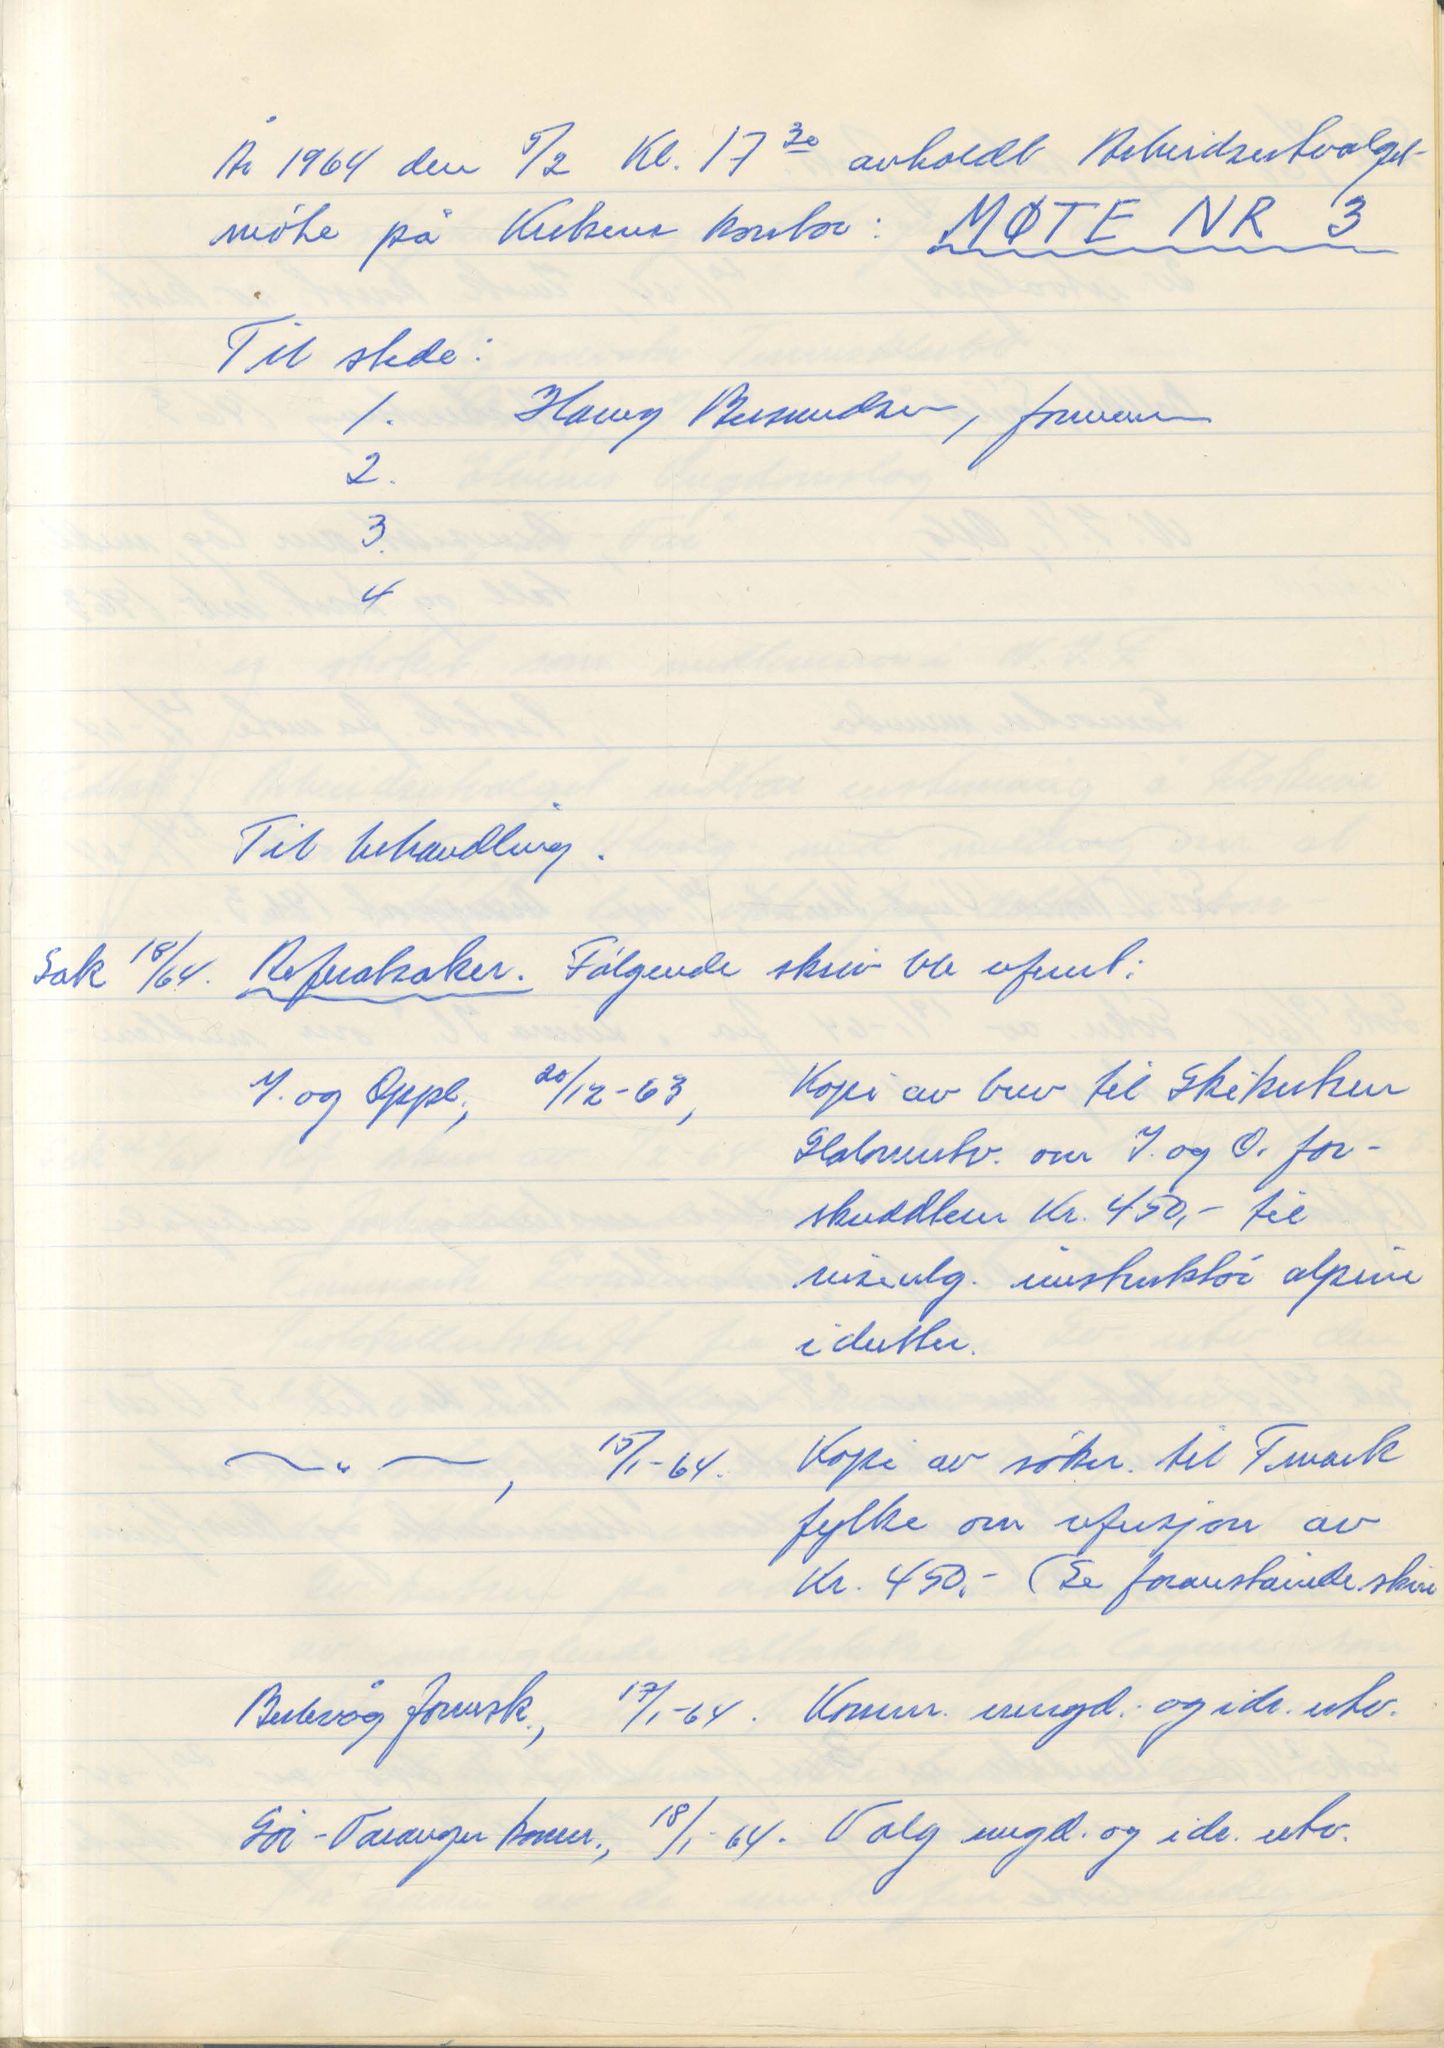 År 1964 den 5/2 Kl. 17 30 avholdt Arbeidsutvalget
møte på Kretsens kontor: MØTE NR 3
Til stede:
1. Harry Bersvendsen, formann
2.
3.
4
Til behandling.
Sak 18/64. Referatsaker. Følgende skriv ble referert:
Y. og Oppl., 20/12-63, Kopi av brev til Skikretsen
Slalomutv. om Y. og O. for-
skudderer Kr. 450,- til
reiseutg. instruktør alpine
idretter.
— " —, 15/1-64. Kopi av søkn. til F.mark
fylke om refusjon av
Kr. 450,- (Se foranstående skriv
Berlevåg formsk., 17/1-64. Komm. ungd. og idr. utv.
Sør-Varanger komm., 18/1-64. Valg ungd. og idr. utv.